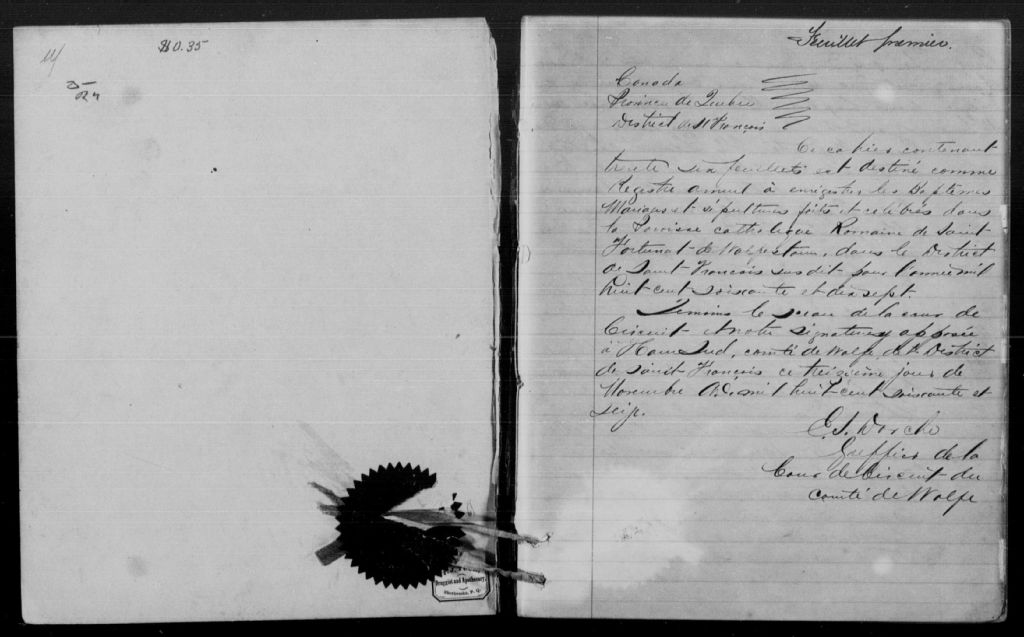 $0.35
Feuillet premier.
Canada
Province de Quebec
District de St François
Ce cahier contenant
trente six feuillets est destiné comme
Registre devant à enrégistrer les Baptêmes
Mariages et sépultures faits et célébrés dans
la Paroisse catholique Romaine de Saint
Fortunat de Wolfestown, dans le District
de Saint François susdit pour l'année mil
huit cent soixante et dix sept.
Témoins le sceau de la cour de
Circuit et notre signature y apposée
à Ham Sud, comté de Wolfe, District
de Saint François ce treizième jour de
Novembre A.D. mil huit cent soixante et
seize.
Greffier de la
Cour de Circuit du
comté de Wolfe
Druggist and Apothecary,
Sherbrooke, P. Q.